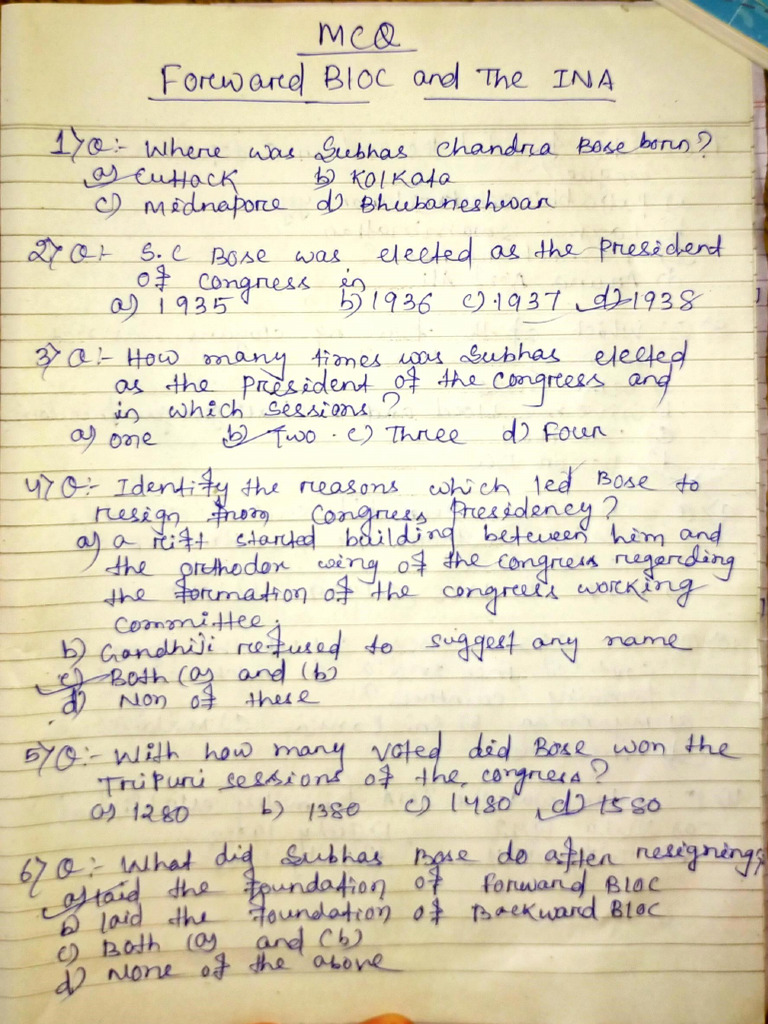 MCQ
Forward Bloc and The INA
1) Q:- Where was Subhas Chandra Bose born?
a) Cuttack b) Kolkata
c) Midnapore d) Bhubaneshwar
2) Q:- S.C Bose was elected as the president
of congress in
a) 1935 b) 1936 c) 1937 d) 1938
3) Q:- How many times was Subhas elected
as the president of the congress and
in which sessions?
a) one b) Two c) Three d) Four
4) Q:- Identify the reasons which led Bose to
resign from Congress Presidency?
a) a rift started building between him and
the orthodox wing of the congress regarding
the formation of the congress working
committee;
b) Gandhiji refused to suggest any name
c) Both (a) and (b)
d) Non of these
5) Q:- With how many voted did Bose won the
Tripuri sessions of the congress?
a) 1280 b) 1380 c) 1480 d) 1580
6) Q:- What did Subhas Bose do after resigning?
a) laid the foundation of forward Bloc
b) laid the foundation of Backward Bloc
c) Both (a) and (b)
d) None of the above